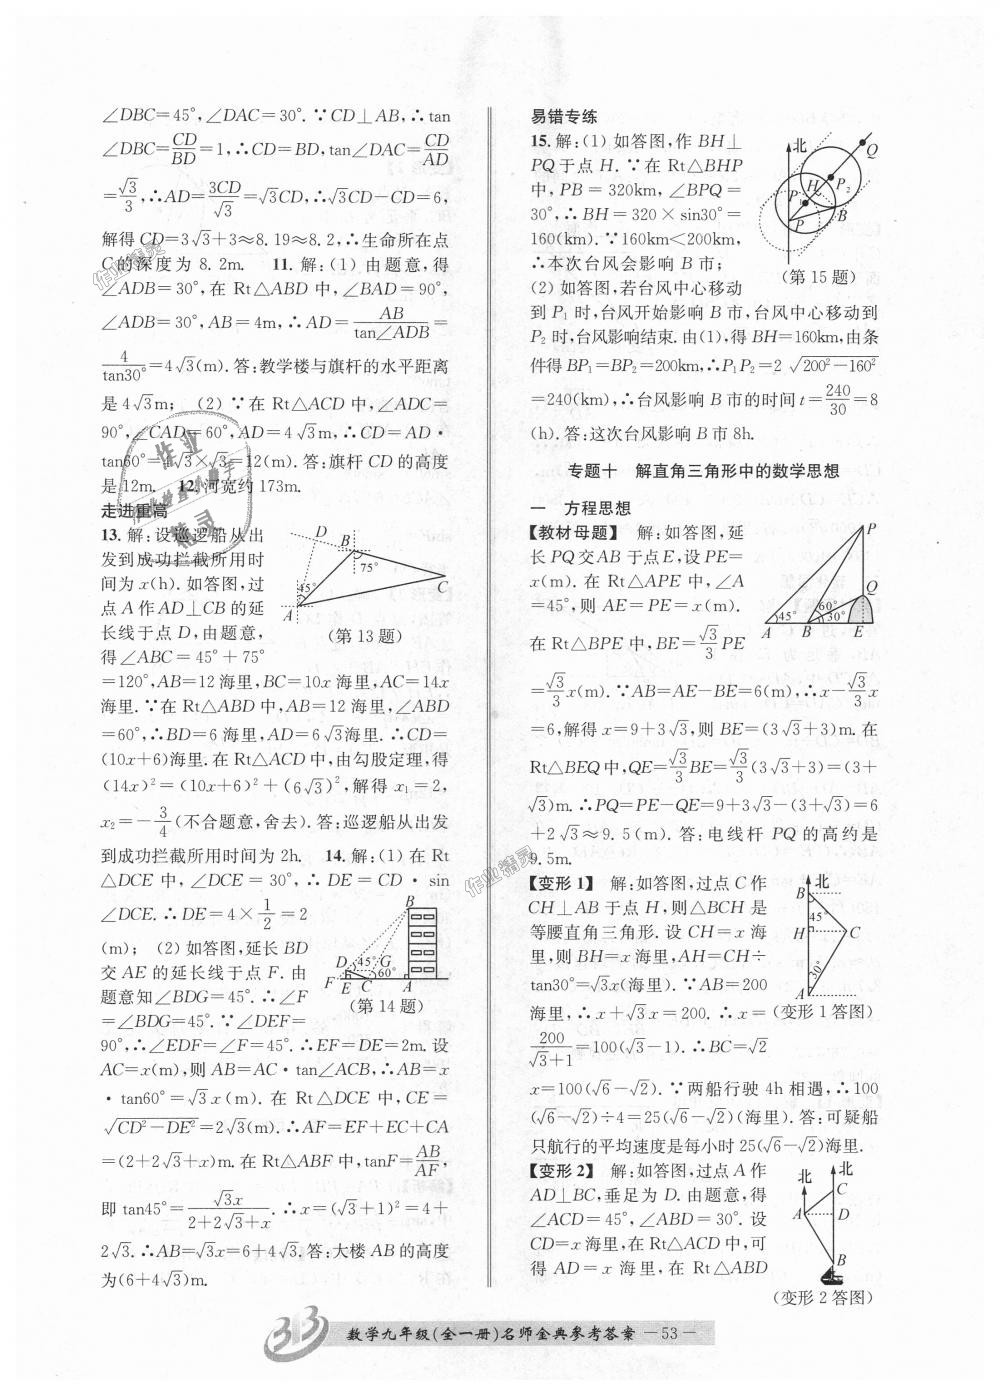 ∠DBC=45°,∠DAC=30°.∵CD⊥AB,∴tan
∠DBC=CD/BD=1,∴CD=BD,tan∠DAC=CD/AD
=√3/3,∴AD=3CD/√3=√3CD,∴√3CD−CD=6,
解得CD=3√3+3≈8.19≈8.2,∴生命所在点
C的深度为8.2m. 11.解:(1)由题意,得
∠ADB=30°,在Rt△ABD中,∠BAD=90°,
∠ADB=30°,AB=4m,∴AD=AB/tan∠ADB=
4/tan30°=4√3(m).答:教学楼与旗杆的水平距离
是4√3m; (2)∵在Rt△ACD中,∠ADC=
90°,∠CAD=60°,AD=4√3m,∴CD=AD·
tan60°=4√3×√3=12(m).答:旗杆CD的高度
是12m. 12.河宽约173m.
走进重高
13.解:设巡逻船从出
发到成功拦截所用时
间为x(h).如答图,过
点A作AD⊥CB的延
长线于点D,由题意,
得∠ABC=45°+75°
D B 75° 45° C A
(第13题)
=120°,AB=12海里,BC=10x海里,AC=14x
海里.∵在Rt△ABD中,AB=12海里,∠ABD
=60°,∴BD=6海里,AD=6√3海里.∴CD=
(10x+6)海里.在Rt△ACD中,由勾股定理,得
(14x)²=(10x+6)²+(6√3)²,解得x₁=2,
x₂=−3/4(不合题意,舍去).答:巡逻船从出发
到成功拦截所用时间为2h. 14.解:(1)在Rt
△DCE中,∠DCE=30°,∴DE=CD·sin
∠DCE.∴DE=4×1/2=2
(m); (2)如答图,延长BD
交AE的延长线于点F.由
题意知∠BDG=45°.∴∠F
=∠BDG=45°.∵∠DEF=
B D 45° G 60° F E C A
(第14题)
90°,∴∠EDF=∠F=45°.∴EF=DE=2m.设
AC=x(m),则AB=AC·tan∠ACB,∴AB=x
·tan60°=√3x(m).在Rt△DCE中,CE=
√(CD²−DE²)=2√3(m).∴AF=EF+EC+CA
=(2+2√3+x)m.在Rt△ABF中,tanF=AB/AF,
即tan45°=√3x/(2+2√3+x).∴x=(√3+1)²=4+
2√3.∴AB=√3x=6+4√3.答:大楼AB的高度
为(6+4√3)m.
易错专练
15.解:(1)如答图,作BH⊥
PQ于点H.∵在Rt△BHP
中,PB=320km,∠BPQ=
30°,∴BH=320×sin30°=
160(km).∵160km<200km,
∴本次台风会影响B市;
北 Q H P₂ P₁ B P
(第15题)
(2)如答图,若台风中心移动
到P₁时,台风开始影响B市,台风中心移动到
P₂时,台风影响结束.由(1),得BH=160km,由条
件得BP₁=BP₂=200km,∴P₁P₂=2√(200²−160²)
=240(km),∴台风影响B市的时间t=240/30=8
(h).答:这次台风影响B市8h.
专题十 解直角三角形中的数学思想
一 方程思想
【教材母题】 解:如答图,延
长PQ交AB于点E,设PE=
x(m).在Rt△APE中,∠A
=45°,则AE=PE=x(m).
在Rt△BPE中,BE=√3/3PE
P Q 60° 45° 30° A B E
=√3/3x(m).∵AB=AE−BE=6(m),∴x−√3/3x
=6,解得x=9+3√3,则BE=(3√3+3)m.在
Rt△BEQ中,QE=√3/3BE=√3/3(3√3+3)=(3+
√3)m.∴PQ=PE−QE=9+3√3−(3+√3)=6
+2√3≈9.5(m).答:电线杆PQ的高约是
9.5m.
【变形1】 解:如答图,过点C作
CH⊥AB于点H,则△BCH是
等腰直角三角形.设CH=x海
里,则BH=x海里,AH=CH÷
tan30°=√3x(海里).∵AB=200
海里,∴x+√3x=200.∴x=
北 B 45° H C 30° A
(变形1答图)
200/(√3+1)=100(√3−1).∴BC=√2
x=100(√6−√2).∵两船行驶4h相遇,∴100
(√6−√2)÷4=25(√6−√2)(海里).答:可疑船
只航行的平均速度是每小时25(√6−√2)海里.
【变形2】 解:如答图,过点A作
AD⊥BC,垂足为D.由题意,得
∠ACD=45°,∠ABD=30°.设
CD=x海里,在Rt△ACD中,可
得AD=x海里,在Rt△ABD
北 北 C A D B
(变形2答图)
313 数学九年级(全一册)名师金典参考答案 —53—
作业精灵
作业精灵
作业
精灵